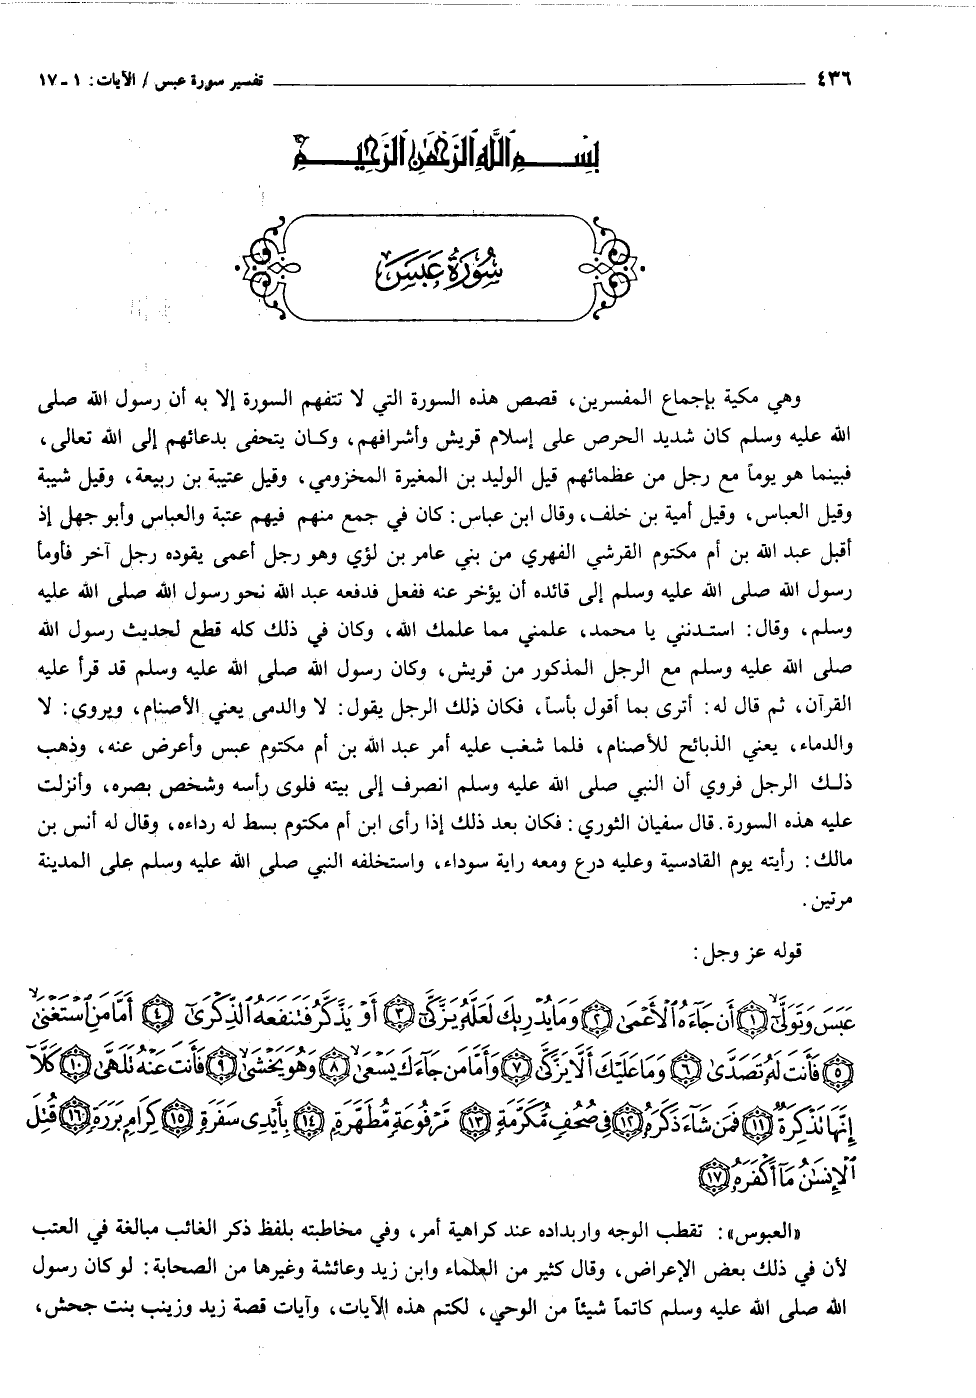 ٤٣٦ تفسير سورة عبس / الآيات: ١ - ١٧
بِسْمِ اللَّهِ الرَّحْمَٰنِ الرَّحِيمِ
سُورَةُ عَبَسَ
وهي مكية بإجماع المفسرين، قصص هذه السورة التي لا تتفهم السورة إلا به أن رسول الله صلى
الله عليه وسلم كان شديد الحرص على إسلام قريش وأشرافهم، وكان يتحفى بدعائهم إلى الله تعالى،
فبينما هو يوماً مع رجل من عظمائهم قيل الوليد بن المغيرة المخزومي، وقيل عتيبة بن ربيعة، وقيل شيبة
وقيل العباس، وقيل أمية بن خلف، وقال ابن عباس: كان في جمع منهم فيهم عتبة والعباس وأبو جهل إذ
أقبل عبد الله بن أم مكتوم القرشي الفهري من بني عامر بن لؤي وهو رجل أعمى يقوده رجل آخر فأومأ
رسول الله صلى الله عليه وسلم إلى قائده أن يؤخر عنه ففعل فدفعه عبد الله نحو رسول الله صلى الله عليه
وسلم، وقال: استدنني يا محمد، علمني مما علمك الله، وكان في ذلك كله قطع لحديث رسول الله
صلى الله عليه وسلم مع الرجل المذكور من قريش، وكان رسول الله صلى الله عليه وسلم قد قرأ عليه
القرآن، ثم قال له: أترى بما أقول بأساً، فكان ذلك الرجل يقول: لا والدمى يعني الأصنام، ويروى: لا
والدماء، يعني الذبائح للأصنام، فلما شغب عليه أمر عبد الله بن أم مكتوم عبس وأعرض عنه، وذهب
ذلك الرجل فروي أن النبي صلى الله عليه وسلم انصرف إلى بيته فلوى رأسه وشخص بصره، وأنزلت
عليه هذه السورة. قال سفيان الثوري: فكان بعد ذلك إذا رأى ابن أم مكتوم بسط له رداءه، وقال له أنس بن
مالك: رأيته يوم القادسية وعليه درع ومعه راية سوداء، واستخلفه النبي صلى الله عليه وسلم على المدينة
مرتين.
قوله عز وجل:
عَبَسَ وَتَوَلَّىٰٓ ﴿١﴾ أَن جَآءَهُ ٱلْأَعْمَىٰ ﴿٢﴾ وَمَا يُدْرِيكَ لَعَلَّهُۥ يَزَّكَّىٰٓ ﴿٣﴾ أَوْ يَذَّكَّرُ فَتَنفَعَهُ ٱلذِّكْرَىٰٓ ﴿٤﴾ أَمَّا مَنِ ٱسْتَغْنَىٰ
﴿٥﴾ فَأَنتَ لَهُۥ تَصَدَّىٰ ﴿٦﴾ وَمَا عَلَيْكَ أَلَّا يَزَّكَّىٰ ﴿٧﴾ وَأَمَّا مَن جَآءَكَ يَسْعَىٰ ﴿٨﴾ وَهُوَ يَخْشَىٰ ﴿٩﴾ فَأَنتَ عَنْهُ تَلَهَّىٰ ﴿١٠﴾ كَلَّآ
إِنَّهَا تَذْكِرَةٌ ﴿١١﴾ فَمَن شَآءَ ذَكَرَهُۥ ﴿١٢﴾ فِى صُحُفٍ مُّكَرَّمَةٍ ﴿١٣﴾ مَّرْفُوعَةٍ مُّطَهَّرَةٍۭ ﴿١٤﴾ بِأَيْدِى سَفَرَةٍ ﴿١٥﴾ كِرَامٍۭ بَرَرَةٍ ﴿١٦﴾ قُتِلَ
ٱلْإِنسَٰنُ مَآ أَكْفَرَهُۥ ﴿١٧﴾
«العبوس»: تقطب الوجه واربداده عند كراهية أمر، وفي مخاطبته بلفظ ذكر الغائب مبالغة في العتب
لأن في ذلك بعض الإعراض، وقال كثير من العلماء وابن زيد وعائشة وغيرها من الصحابة: لو كان رسول
الله صلى الله عليه وسلم كاتماً شيئاً من الوحي، لكتم هذه الآيات، وآيات قصة زيد وزينب بنت جحش،